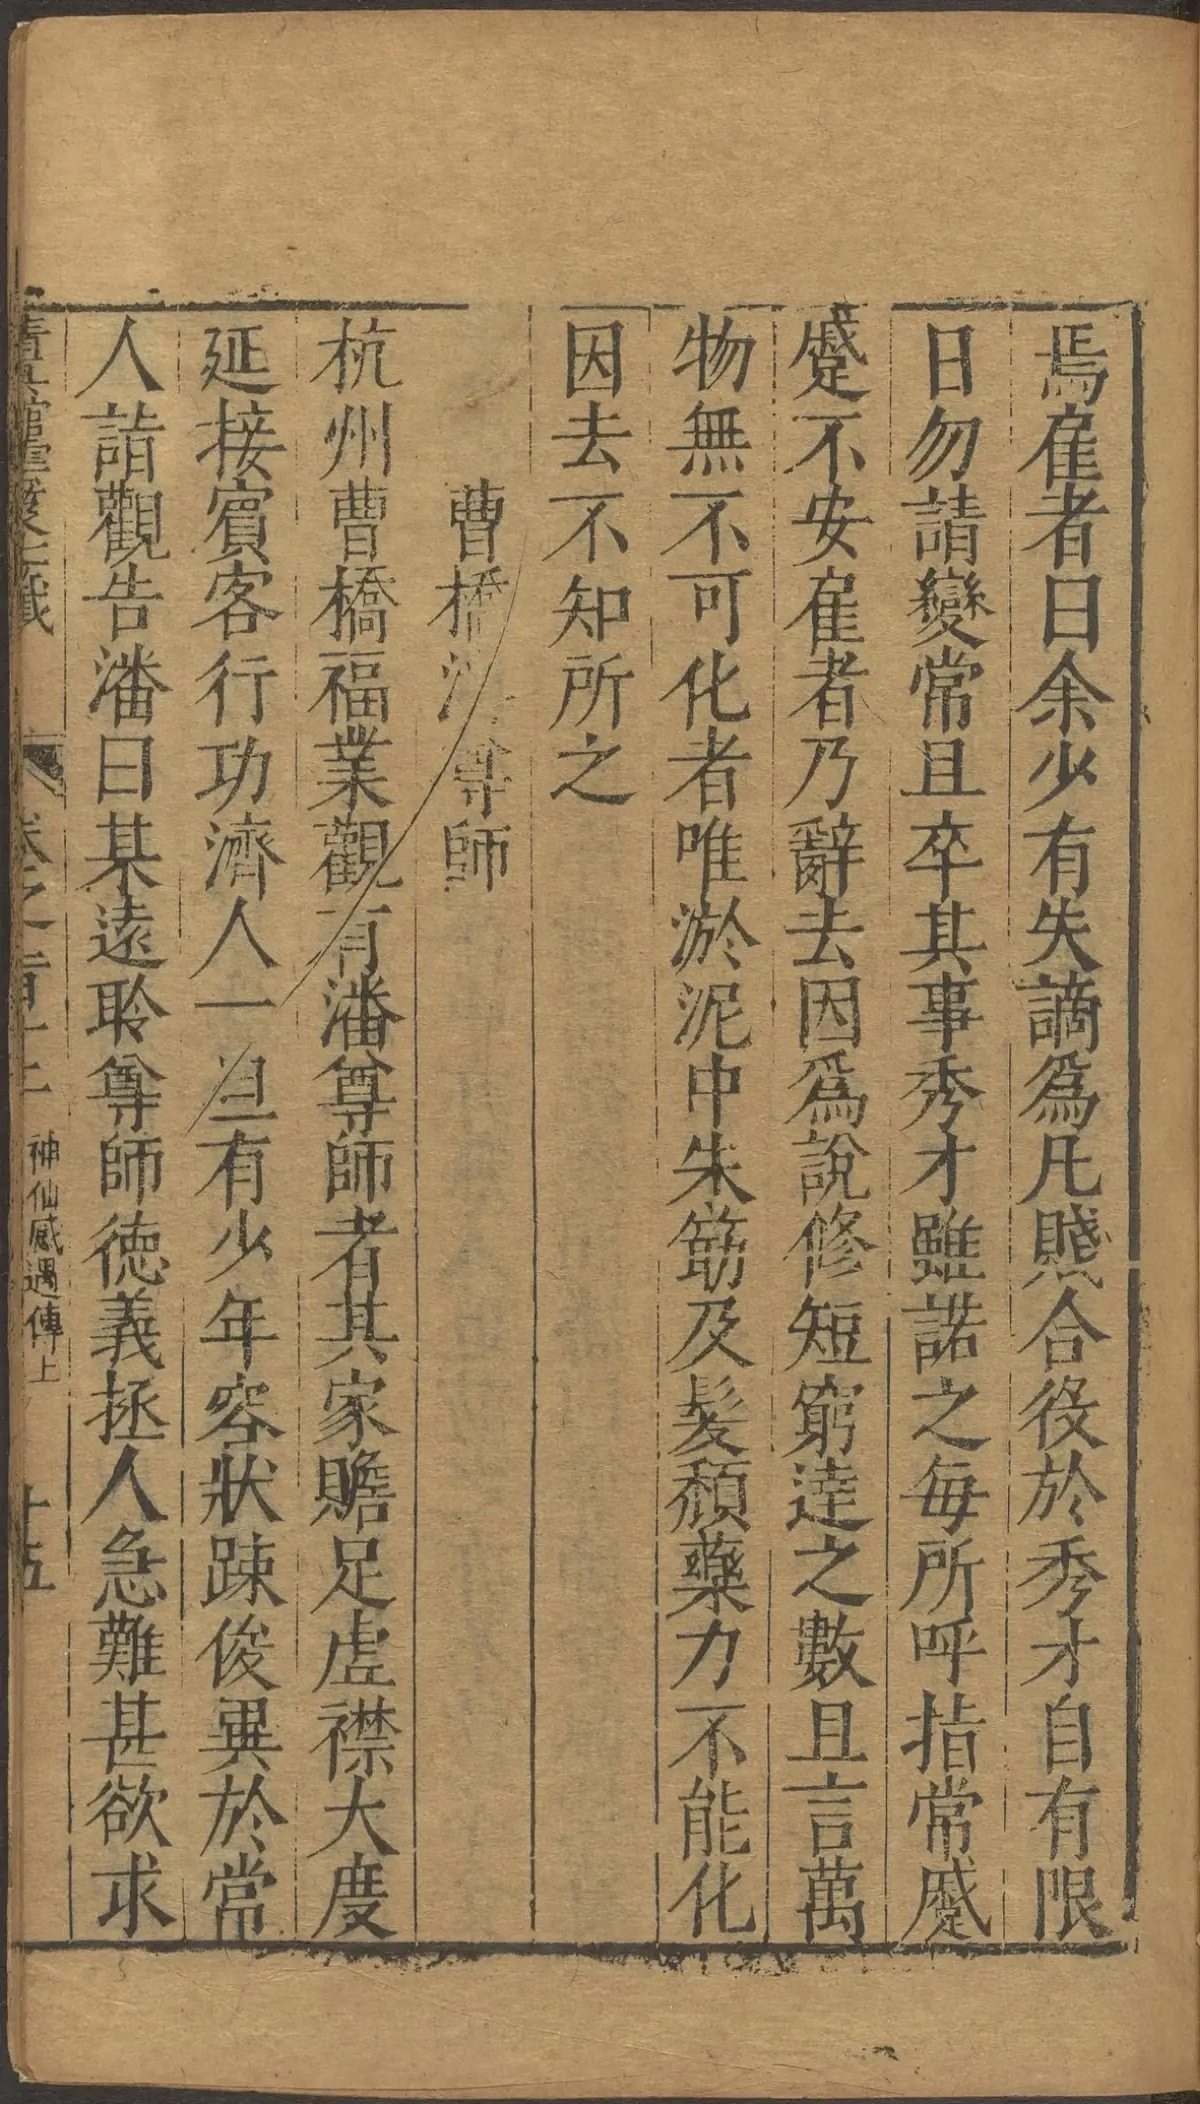 焉傭者曰余少有失謫爲凡賤合役於秀才自有限
日勿請變常且卒其事秀才雖諾之每所呼指常蹙
蹙不安傭者乃辭去因爲說修短窮達之數且言萬
物無不可化者唯淤泥中朱筯及髮頹藥力不能化
因去不知所之
曹橋尊師
杭州曹橋福業觀有潘尊師者其家贍足虛襟大度
延接賓客行功濟人一旦有少年容狀踈俊異於常
人詣觀告潘曰某遠聆尊師德義拯人急難甚欲求
卷之 神仙感遇傳上 十五